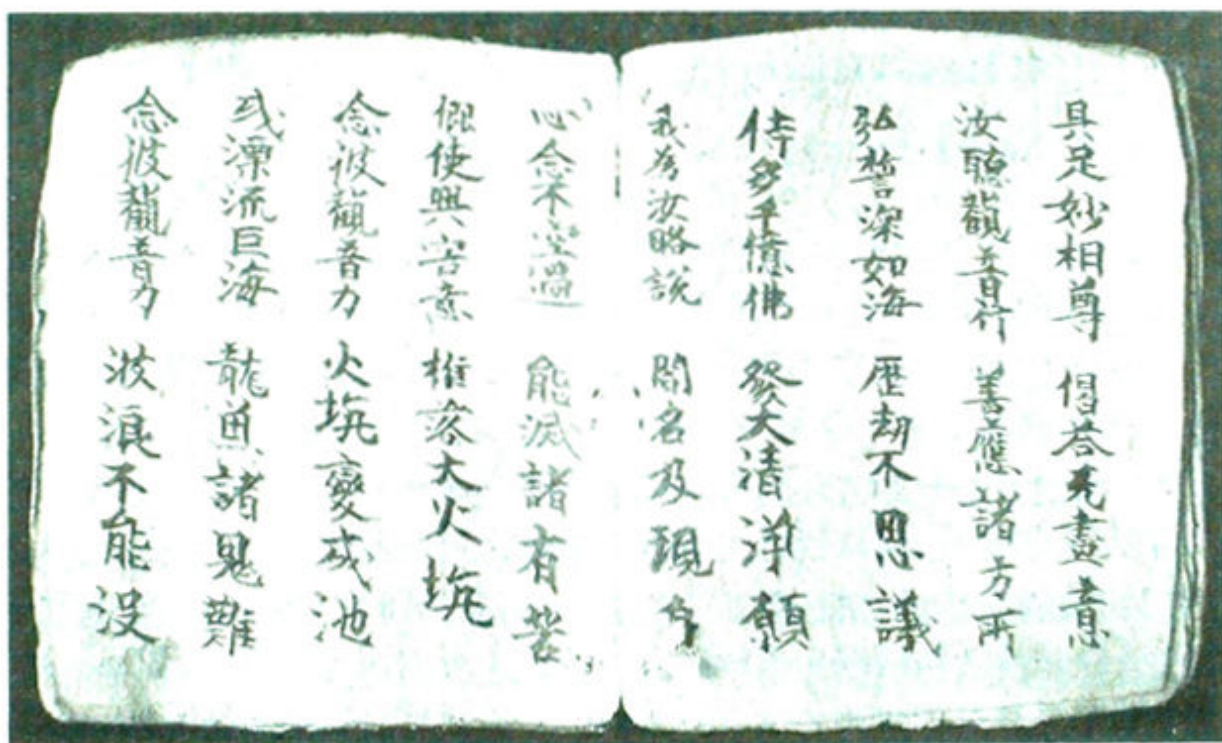 具足妙相尊 偈荅无盡意
汝聴觀音行 善應諸方所
弘誓深如海 歴劫不思議
侍多千億佛 發大清淨願
我爲汝略說 聞名及現身
心念不空過 能滅諸有苦
假使興害意 推落大火坑
念彼觀音力 火坑變成池
或漂流巨海 龍魚諸鬼難
念彼觀音力 波浪不能没